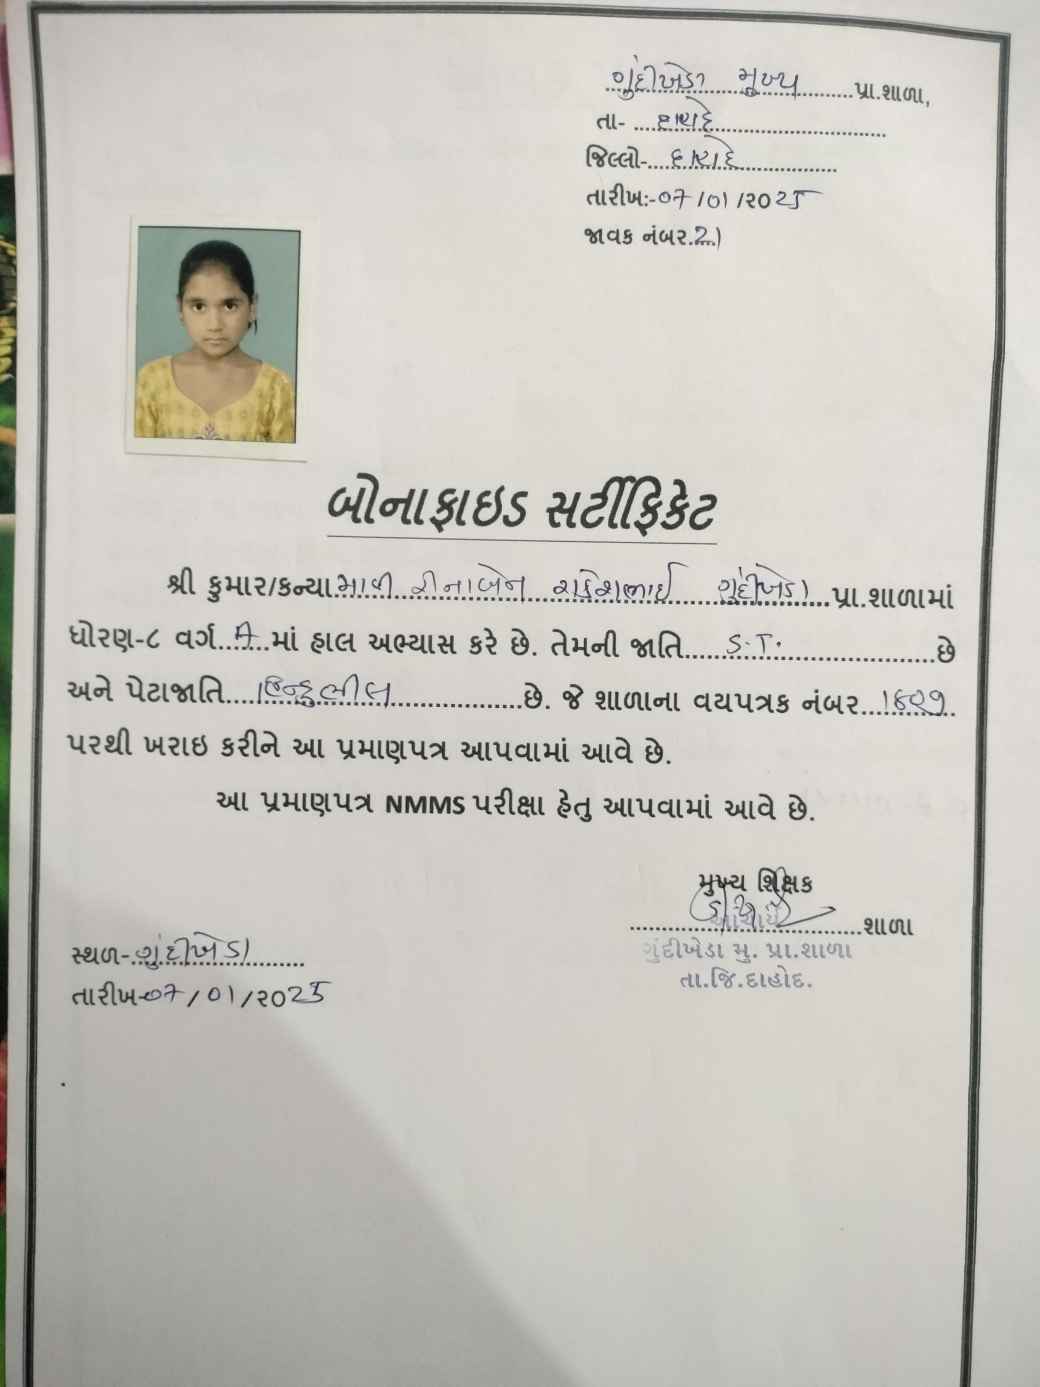 ગુંદીખેડા મુખ્ય પ્રા.શાળા,
તા- દાહોદ
જિલ્લો- દાહોદ
તારીખ:-07/01/૨૦25
જાવક નંબર.21
બોનાફાઇડ સર્ટીફિકેટ
શ્રી કુમાર/કન્યા માવી રીનાબેન રાકેશભાઈ ગુંદીખેડા પ્રા.શાળામાં
ધોરણ-૮ વર્ગ A માં હાલ અભ્યાસ કરે છે. તેમની જાતિ S.T. છે
અને પેટાજાતિ હિન્દુભીલ છે. જે શાળાના વયપત્રક નંબર
પરથી ખરાઇ કરીને આ પ્રમાણપત્ર આપવામાં આવે છે.
આ પ્રમાણપત્ર NMMS પરીક્ષા હેતુ આપવામાં આવે છે.
મુખ્ય શિક્ષક
આચાર્ય શાળા
ગુંદીખેડા મુ. પ્રા.શાળા
તા.જિ.દાહોદ.
સ્થળ- ગુંદીખેડા
તારીખ-07/01/૨૦25